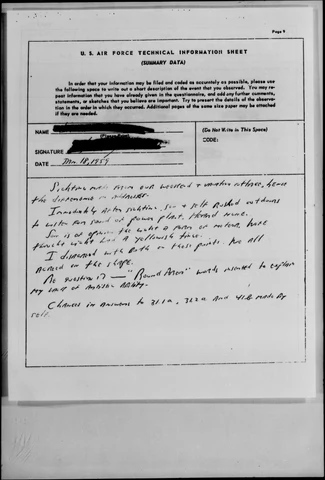 Page 9
U. S. AIR FORCE TECHNICAL INFORMATION SHEET
(SUMMARY DATA)
In order that your information may be filed and coded as accurately as possible, please use
the following space to write out a short description of the event that you observed. You may re-
peat information that you have already given in the questionnaire, and add any further comments,
statements, or sketches that you believe are important. Try to present the details of the observa-
tion in the order in which they occurred. Additional pages of the same size paper may be attached
if they are needed.
NAME
(Please Print)
SIGNATURE
DATE 18, 1959
(Do Not Write in This Space)
CODE:
Sighting made from our weekend & vacation
the
Immediately after sighting, son & self rushed outdoors
to listen for sound of power plant. Heard none.
Son is of opinion the light a form of, have
thought light had a yellowish tinge.
I disagreed with both on those points. We all
agreed on the shape.
Re question — " " words inserted to explain
my lack of artistic ability.
Changes in answers to and made by
self.